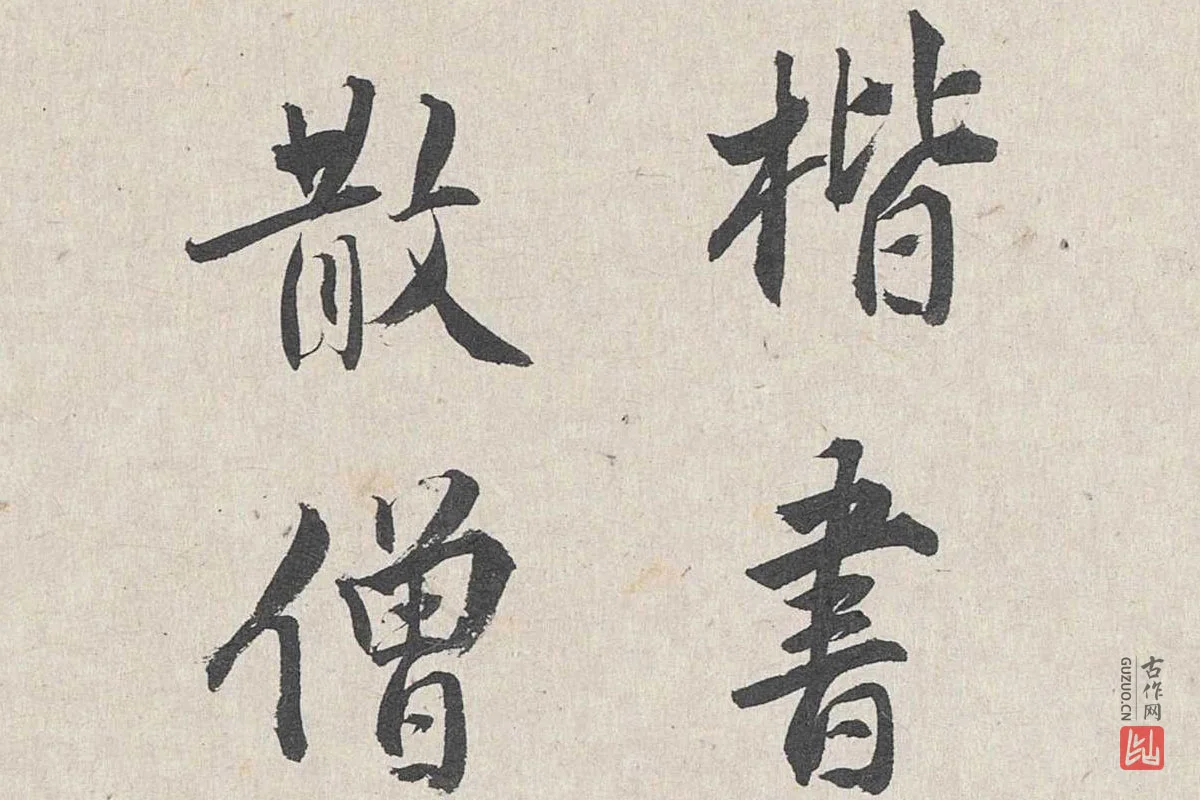 楷书
散僧
古作网
GUZUO.CN